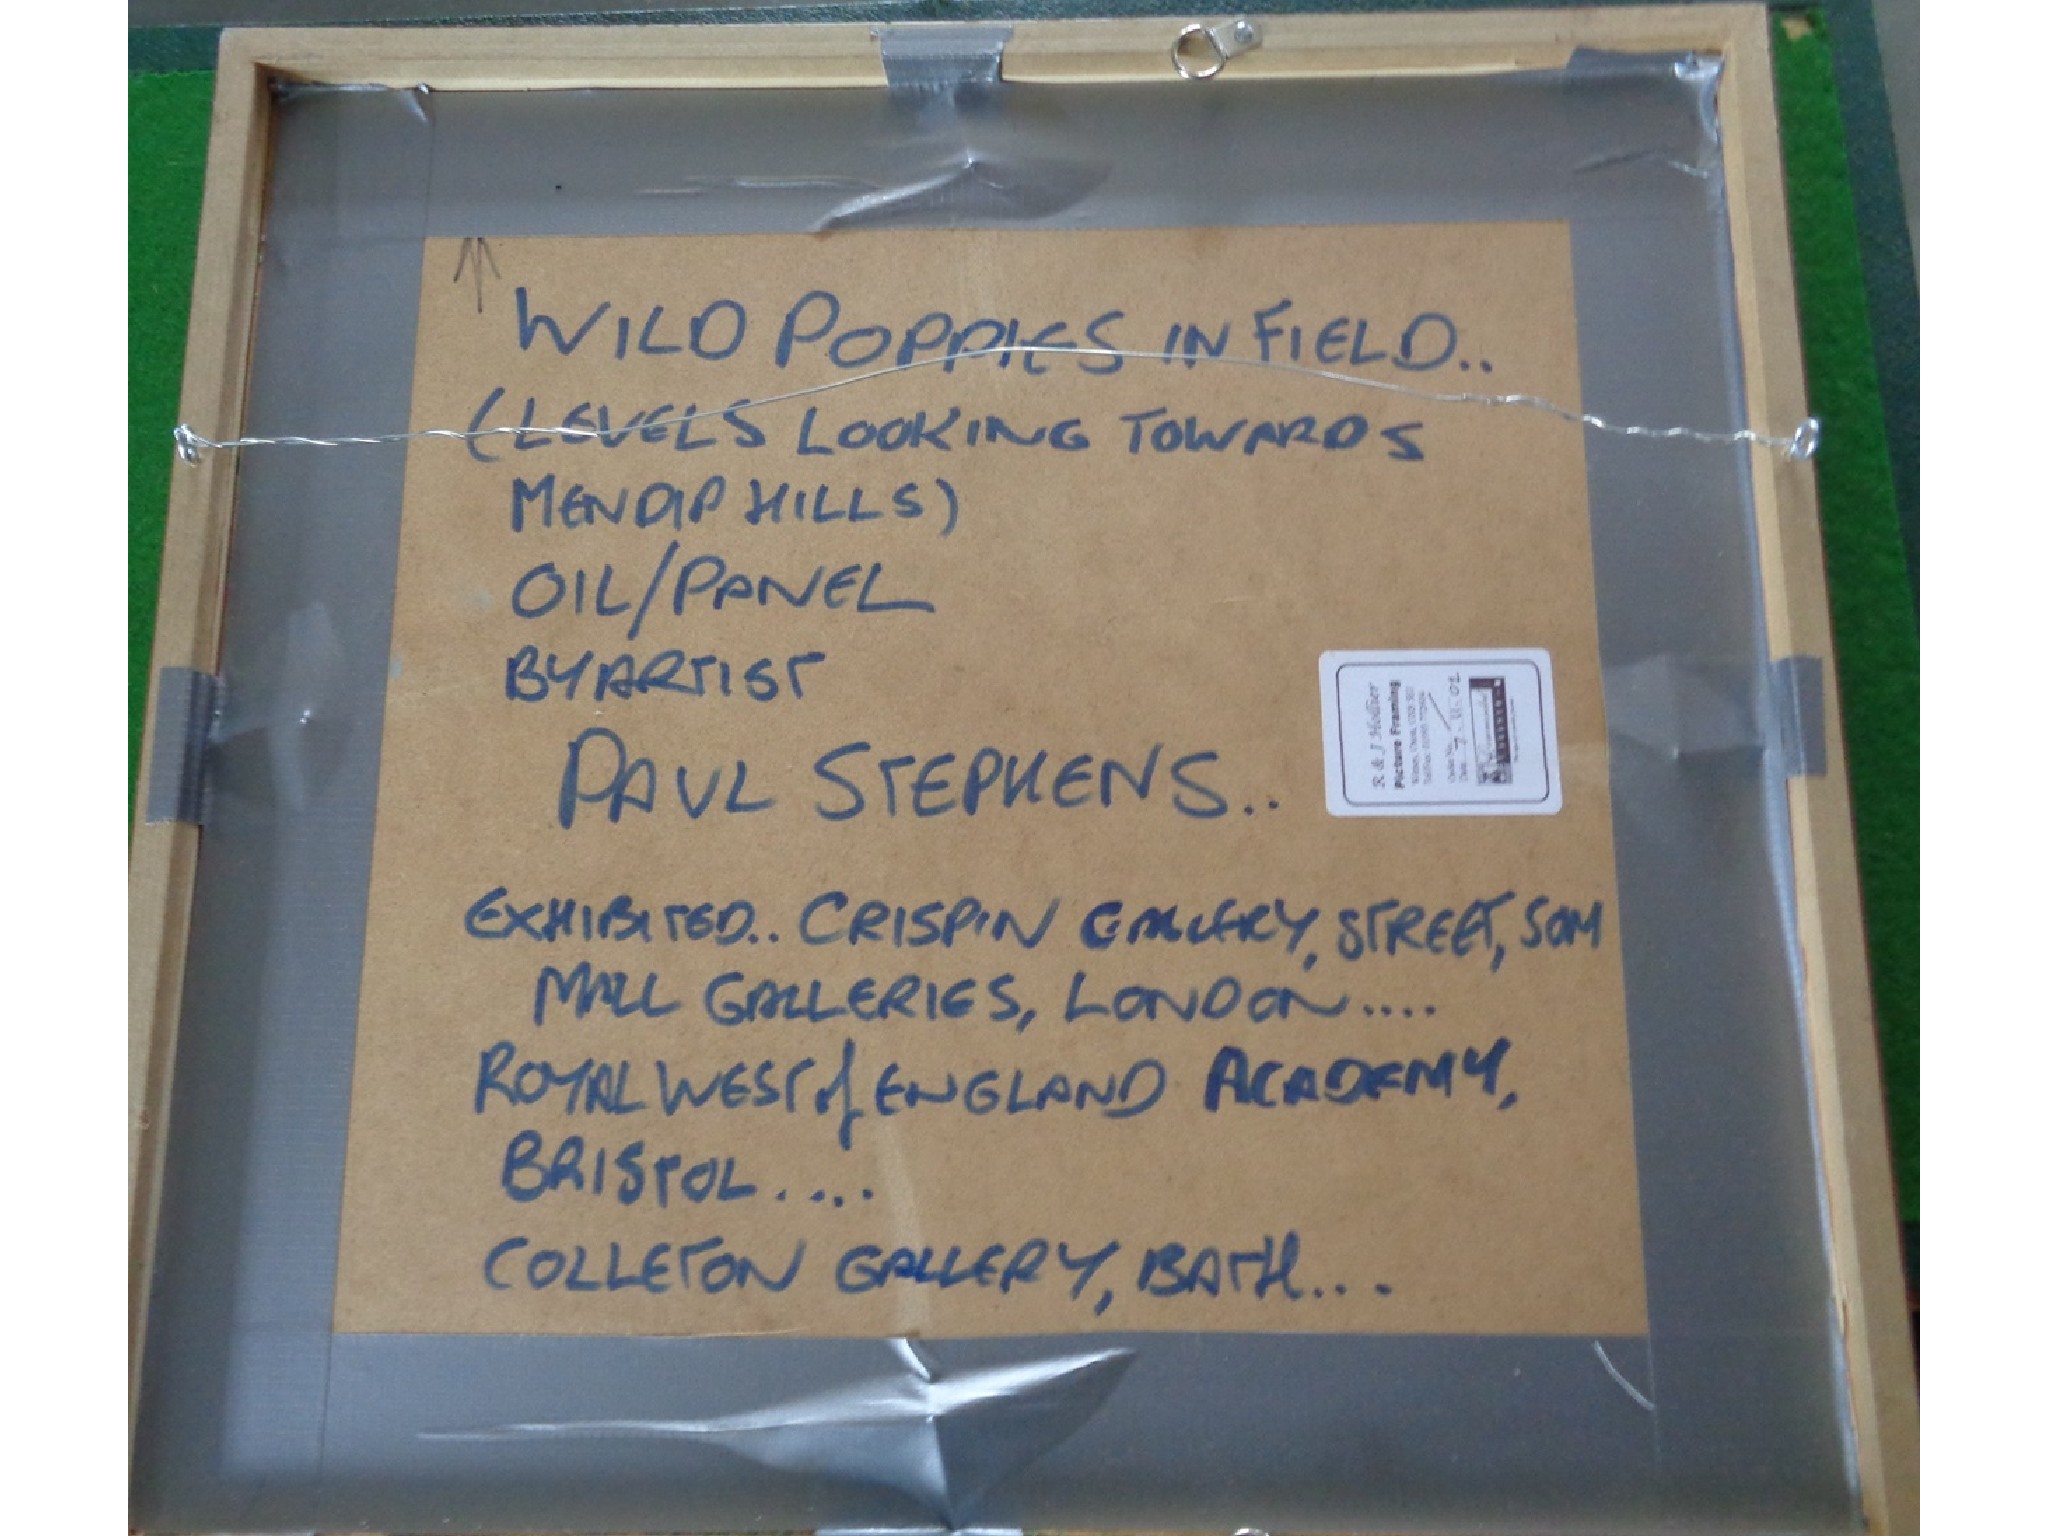 WILD POPPIES IN FIELD..
(LEVELS LOOKING TOWARDS
MENDIP HILLS)
OIL/PANEL
BY ARTIST
PAUL STEPHENS..
R & J Hollier
Picture Framing
EXHIBITED.. CRISPIN GALLERY, STREET, SOM
MALL GALLERIES, LONDON....
ROYAL WEST of ENGLAND ACADEMY,
BRISTOL....
COLLETON GALLERY, BATH...